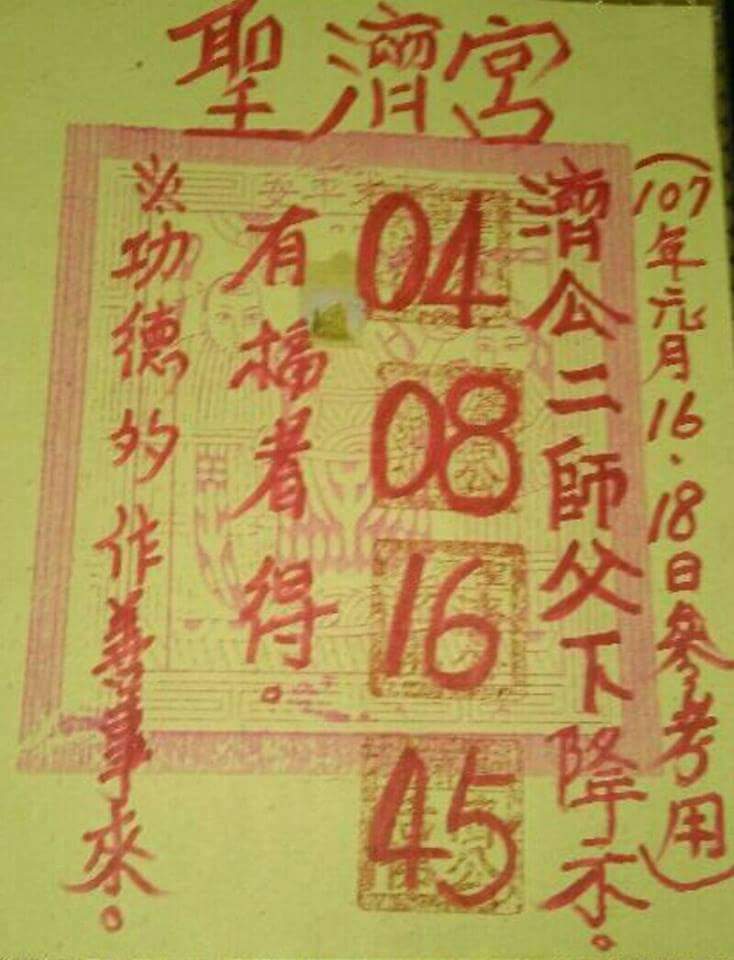 聖濟宮
(107年元月16.18日參考用)
濟公二師父下降示。
04
08
16
45
有福者得。
※功德的作善事來。